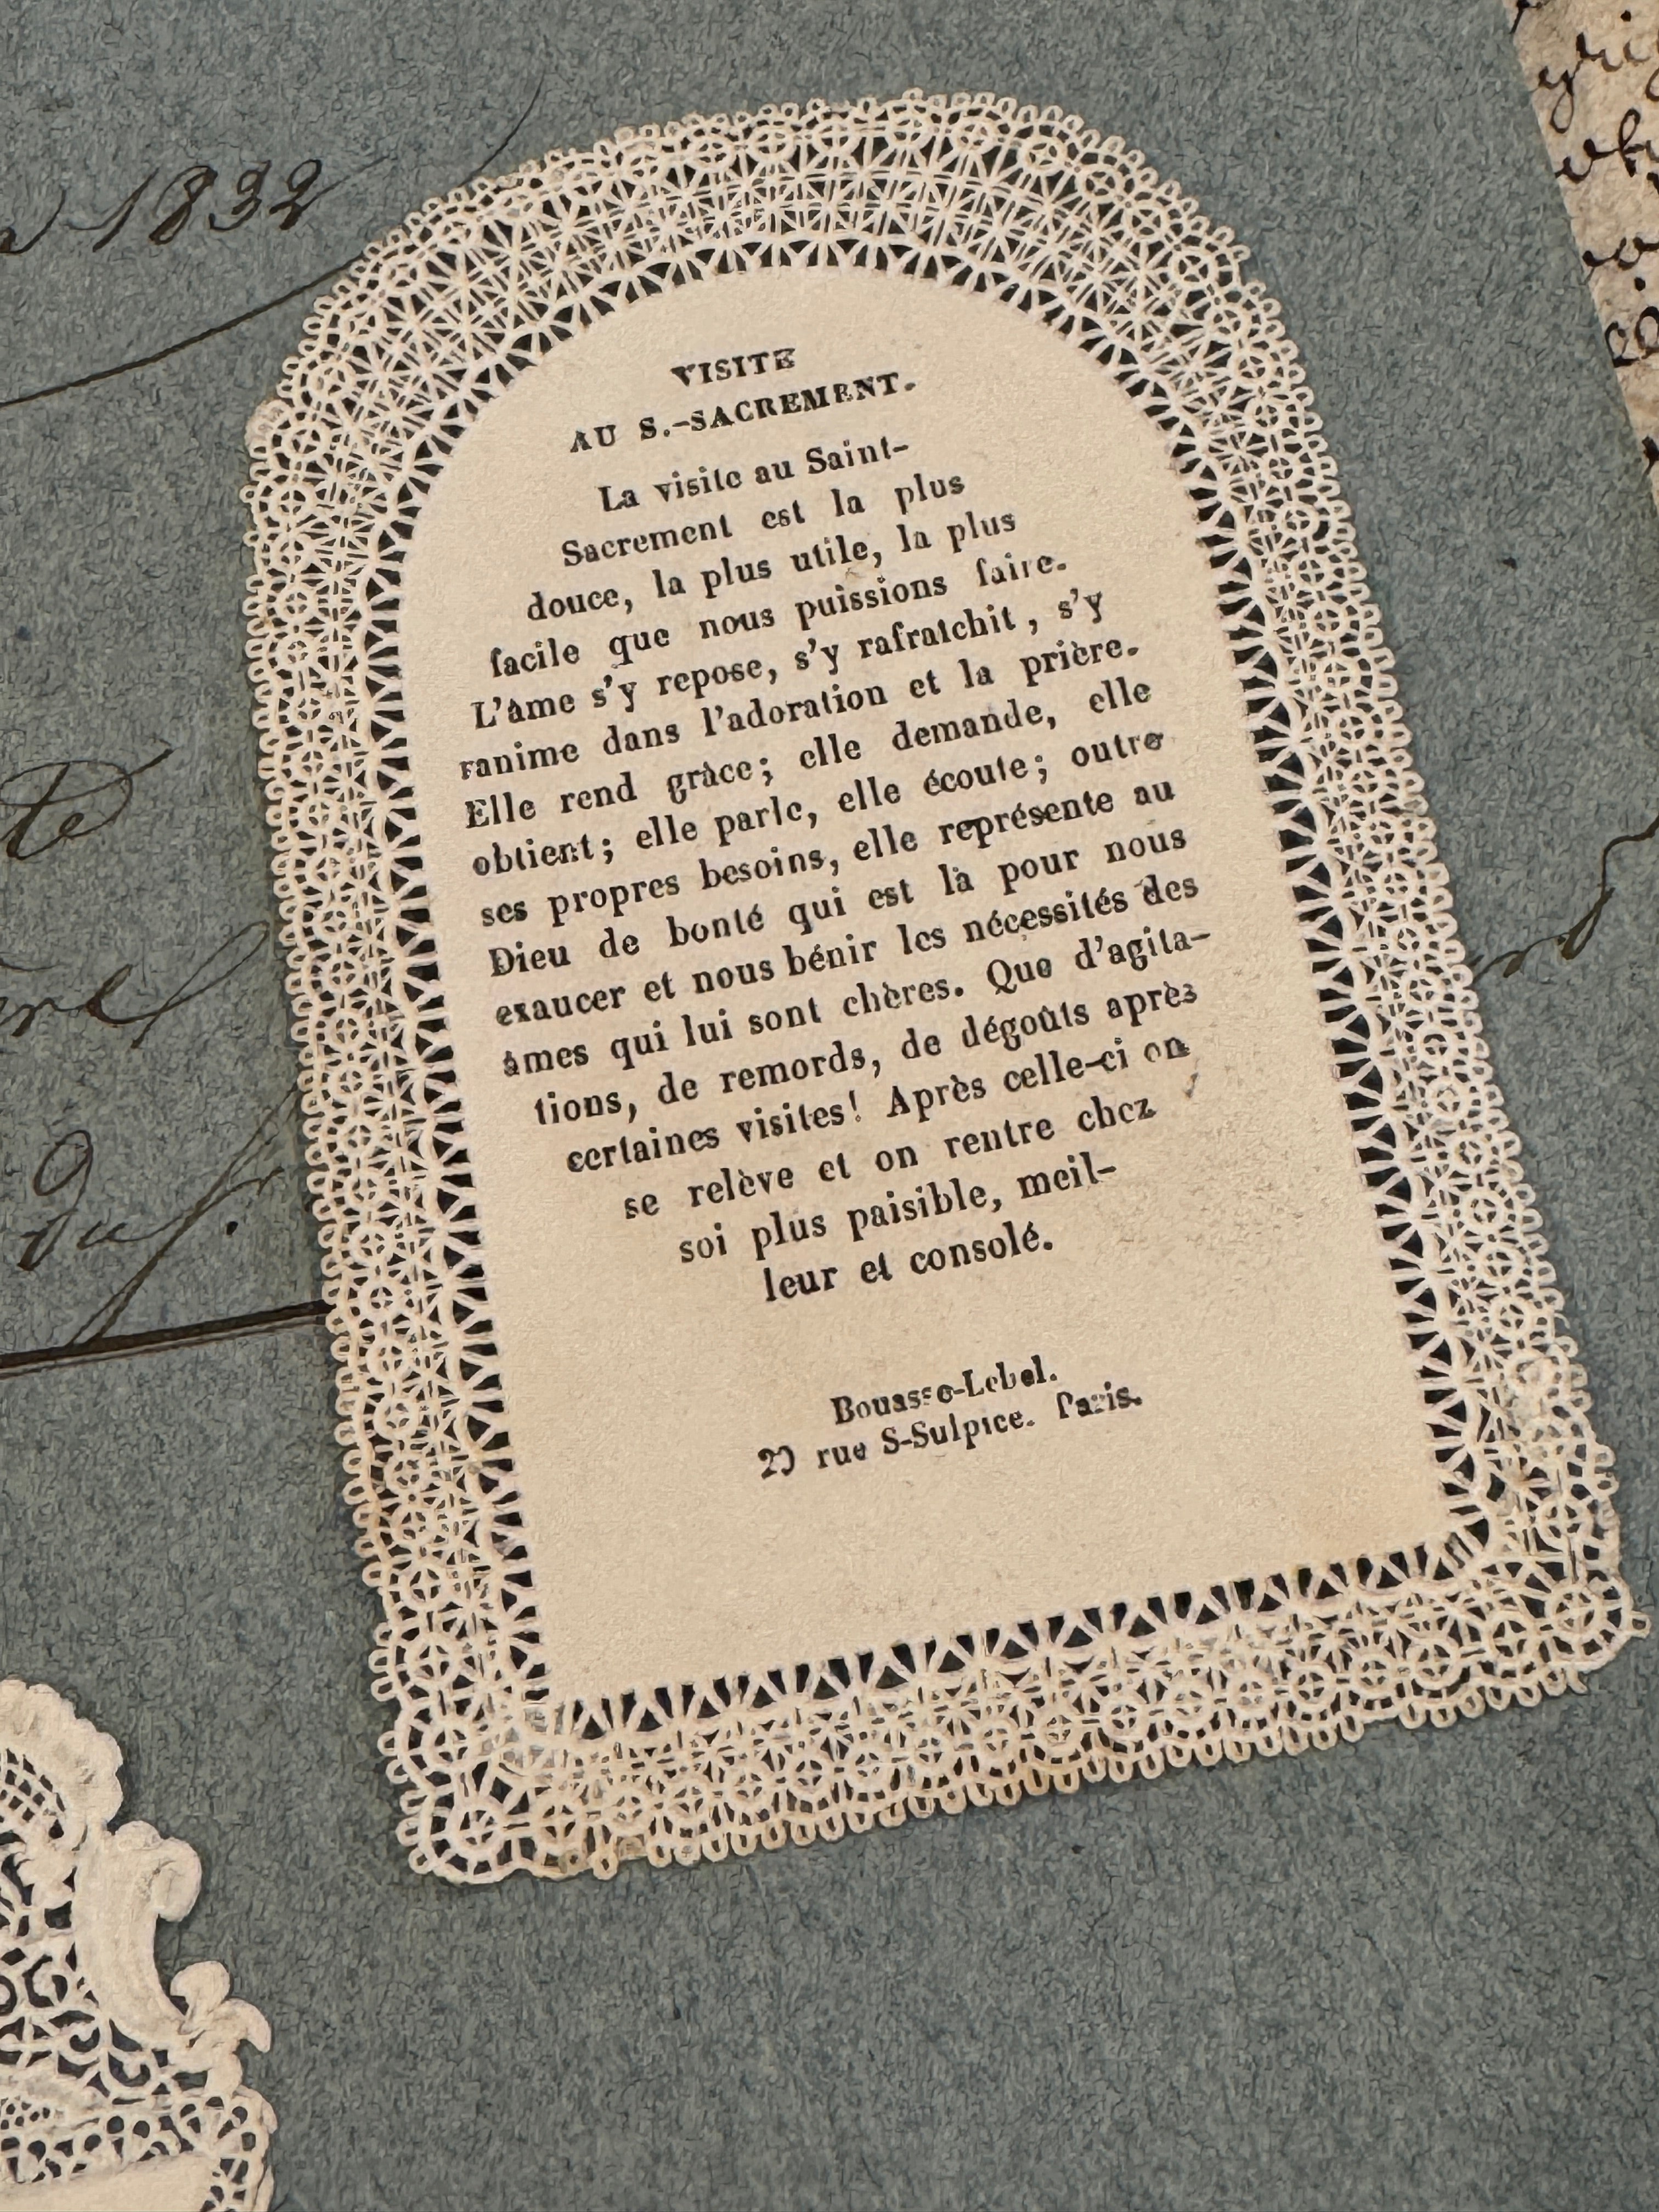 1832
VISITE
AU S.-SACREMENT.
La visite au Saint-
Sacrement est la plus
douce, la plus utile, la plus
facile que nous puissions faire.
L'âme s'y repose, s'y rafraîchit, s'y
ranime dans l'adoration et la prière.
Elle rend grâce; elle demande, elle
obtient; elle parle, elle écoute; outre
ses propres besoins, elle représente au
Dieu de bonté qui est là pour nous
exaucer et nous bénir les nécessités des
âmes qui lui sont chères. Que d'agita-
tions, de remords, de dégoûts après
certaines visites! Après celle-ci on
se relève et on rentre chez
soi plus paisible, meil-
leur et consolé.
Bouasse-Lebel.
rue S-Sulpice. Paris.